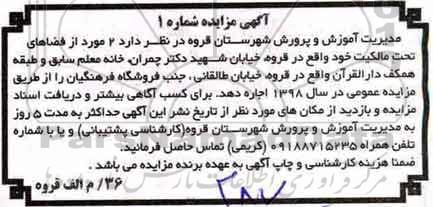 آگهی مزایده شماره ۱
مدیریت آموزش و پرورش شهرستان قروه در نظر دارد ۲ مورد از فضاهای
تحت مالکیت خود واقع در قروه، خیابان شهید دکتر چمران، خانه معلم سابق و طبقه
همکف دارالقرآن واقع در قروه، خیابان طالقانی، جنب فروشگاه فرهنگیان را از طریق
مزایده عمومی در سال ۱۳۹۸ اجاره دهد. برای کسب آگاهی بیشتر و دریافت اسناد
مزایده و بازدید از مکان های مورد نظر از تاریخ نشر این آگهی حداکثر به مدت ۵ روز
به مدیریت آموزش و پرورش شهرستان قروه(کارشناسی پشتیبانی) و یا با شماره
تلفن همراه ۰۹۱۸۸۷۱۵۲۳۵ (کریمی) تماس حاصل فرمائید.
ضمنا هزینه کارشناسی و چاپ آگهی به عهده برنده مزایده می باشد.
۳۶/ م الف قروه